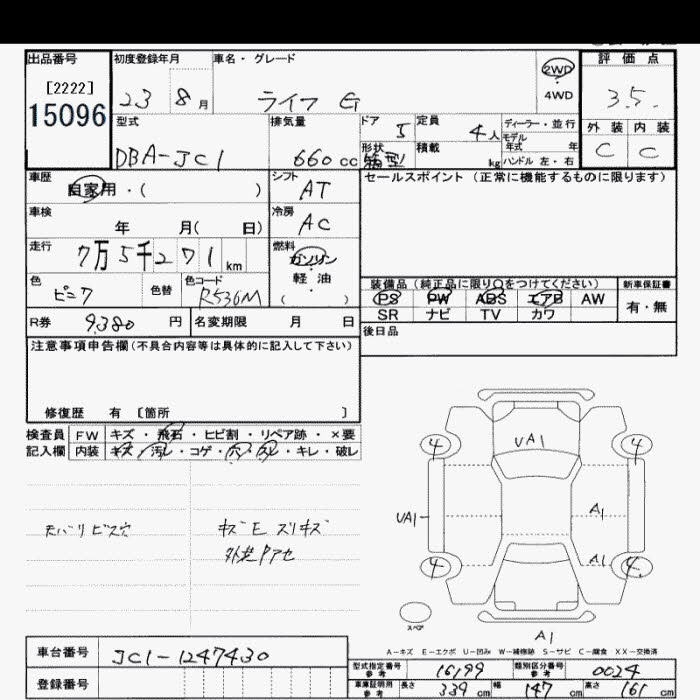 出品番号
[2222]
15096
初度登録年月
23 8月
車名・グレード
ライフ G
2WD
4WD
評価点
3.5.
外装 内装
C C
型式
DBA-JC1
排気量
660cc
ドア 5
形状 箱型
定員 4人
積載 kg
ディーラー・並行
モデル
年式 年
ハンドル 左・右
車歴
自家用・( )
シフト
AT
車検
年 月( 日)
冷房
AC
走行
7万5千271km
燃料
ガソリン
軽油
( )
色
ピンク
色替
色コード
R536M
R券 9,380円
名変期限 月 日
セールスポイント(正常に機能するものに限ります)
装備品(純正品に限り○をつけてください)
PS PW ABS エアB AW
SR ナビ TV カワ
新車保証書
有・無
後日品
注意事項申告欄(不具合内容等は具体的に記入して下さい)
修復歴 有 〔箇所 〕
検査員
記入欄
FW キズ・飛石・ヒビ割・リペア跡・×要
内装 キズ・汚レ・コゲ・穴・スレ・キレ・破レ
天バリ ビス穴
キズE スリキズ
外装 クアセ
4 4
UA1
UA1
A1
A1
4 4
スペア
A1
A-キズ E-エクボ U-凹み W-補修跡 S-サビ C-腐食 XX-交換済
車台番号 JC1-1247430
登録番号
型式指定番号
参考
16199
類別区分番号
参考
0024
車庫証明用
参考
長さ 339cm 幅 147cm 高さ 161cm